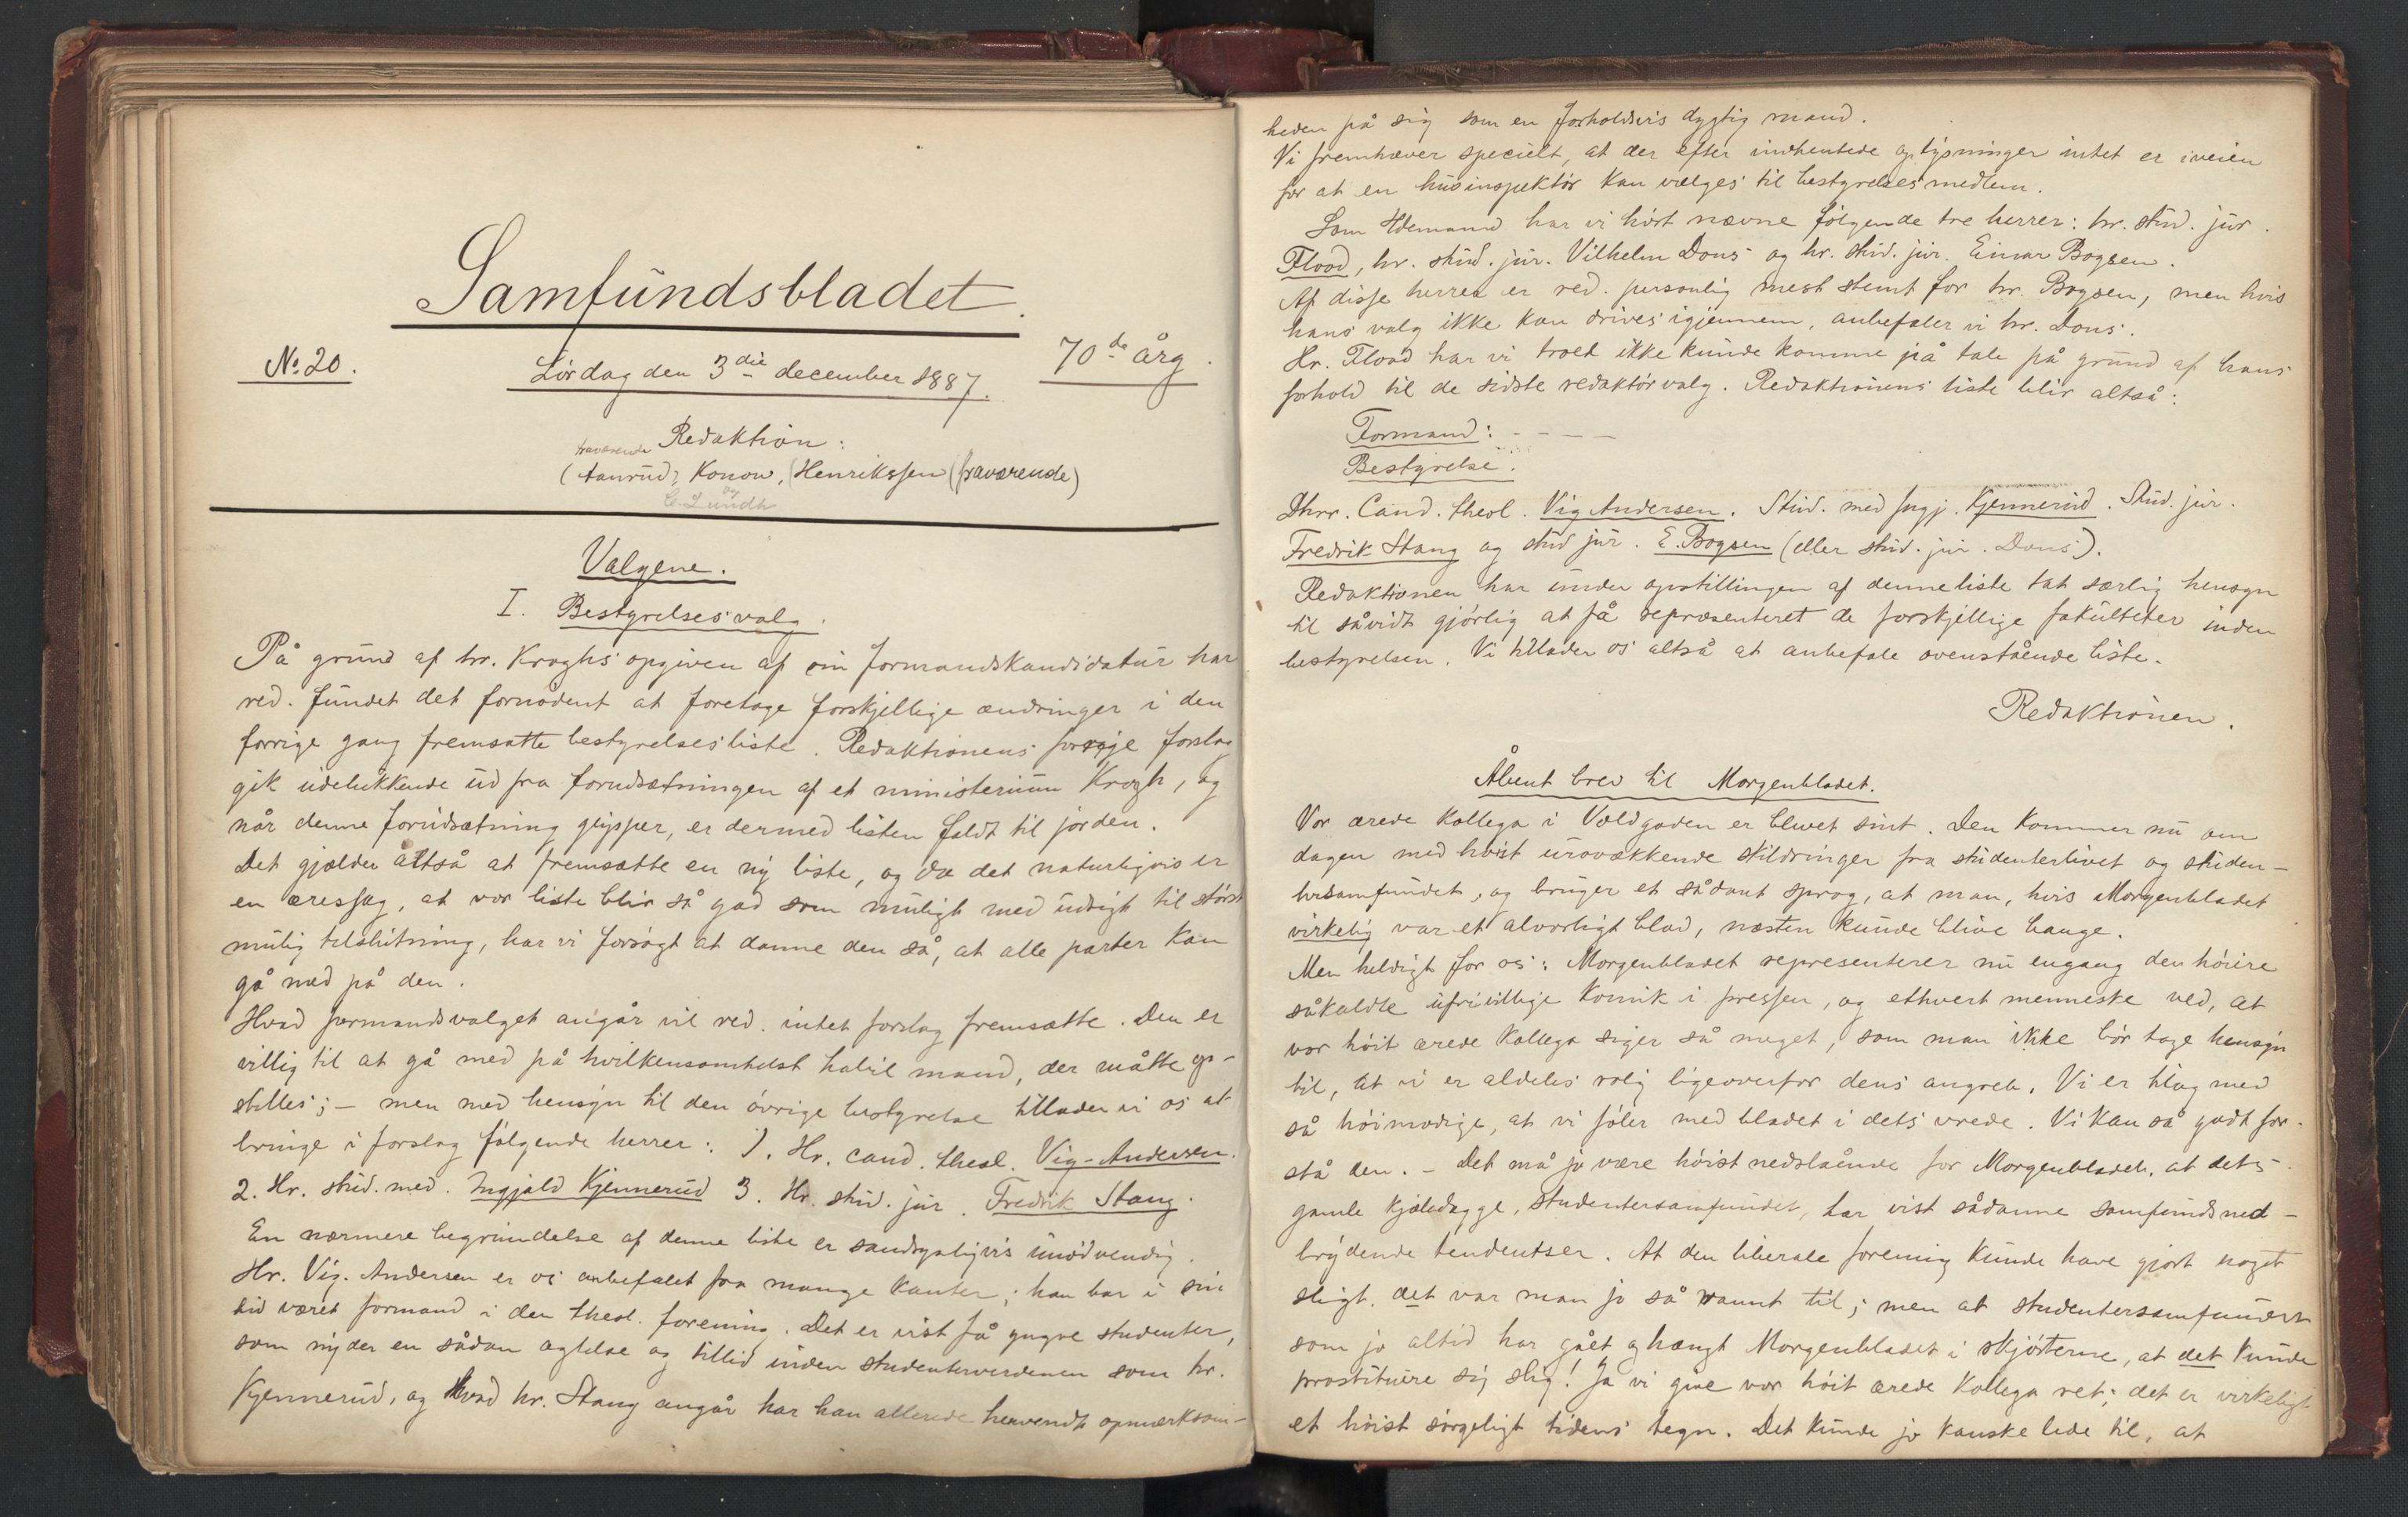 Samfundsbladet.
No. 20.
Lördag den 3die december 1887.
70de årg.
fraværende Redaktion:
(Aanrud, Konow, (Henrikssen (fraværende)
og
C. Lundh
Valgene.
I. Bestyrelsesvalg.
På grund af hr. Kroghs opgiven af sin formandskandidatur har
red. fundet det fornødent at foretage forskjellige ændringer i den
forrige gang fremsatte bestyrelsesliste. Redaktionens forrige forslag
gik udelukkende ud fra forudsætningen af et ministerium Krogh, og
når denne forudsætning glipper, er dermed listen faldt til jorden.
Det gjælder altså at fremsætte en ny liste, og da det naturligvis er
en æressag, at vor liste blir så god som muligt med udsigt til störst
mulig tilslutning, har vi forsøgt at danne den så, at alle parter kan
gå med på den.
Hvad formandsvalget angår vil red. intet forslag fremsætte. Den er
villig til at gå med på hvilkensomhelst habil mand, der måtte op-
stilles; – men med hensyn til den övrige bestyrelse tillader vi os at
bringe i forslag fölgende herrer: 1. Hr. cand. theol. Vig-Andersen.
2. Hr. stud. med. Ingjald Kjennerud 3. Hr. stud. jur. Fredrik Stang.
En nærmere begrundelse af denne liste er sandsynligvis unödvendig.
Hr. Vig. Andersen er os anbefalet fra mange kanter; han har i sin
tid været formand i den theol. forening. Det er vist få yngre studenter,
som nyder en sådan agtelse og tillid inden studenterverdenen som hr.
Kjennerud, og hvad hr. Stang angår har han allerede henvendt opmærksom-
heden på sig som en forholdsvis dygtig mand.
Vi fremhæver specielt, at der efter indhentede oplysninger intet er iveien
for at en husinspektör kan vælges til bestyrelsesmedlem.
Som 4demand har vi hört nævne fölgende tre herrer: hr. stud. jur.
Flood, hr. stud. jur. Vilhelm Dons og hr. stud. jur. Einar Bogsen.
Af disse herrer er red. personlig mest stemt for hr. Bogsen, men hvis
hans valg ikke kan drives igjennem, anbefaler vi hr. Dons.
Hr. Flood har vi troet ikke kunde komme på tale på grund af hans
forhold til de sidste redaktörvalg. Redaktionens liste blir altså:
Formand: - - - -
Bestyrelse:
Dhrr. Cand. theol. Vig Andersen. Stud. med Ingj. Kjennerud. Stud. jur.
Fredrik Stang og stud jur. E. Bogsen (eller stud. jur. Dons).
Redaktionen har under opstillingen af denne liste tat særlig hensyn
til såvidt gjörlig at få repræsenteret de forskjellige fakulteter inden
bestyrelsen. Vi tillader os altså at anbefale ovenstående liste.
Redaktionen.
Åbent brev til Morgenbladet.
Vor ærede kollega i Voldgaden er blevet sint. Den kommer nu om
dagen med höist urovækkende skildringer fra studenterlivet og studen-
tersamfundet, og bruger et sådant sprog, at man, hvis Morgenbladet
virkelig var et alvorligt blad, næsten kunde blive bange.
Men heldigt for os: Morgenbladet representerer nu engang den höiere
såkaldte ufrivillige komik i pressen, og ethvert menneske ved, at
vor höit ærede kollega siger så meget, som man ikke bör tage hensyn
til, at vi er aldeles rolig ligeoverfor dens angreb. Vi er tilog med
så höimodige, at vi föler med bladet i dets vrede. Vi kan så godt for-
stå den. – Det må jo være höist nedslående for Morgenbladet, at dets
gamle kjæledægge, studentersamfundet, har vist sådanne samfundsned-
brydende tendentser. At den liberale forening kunde have gjort noget
sligt, det var man jo så vannt til; men at studentersamfundet
som jo altid har gået og hængt Morgenbladet i skjörterne, at det kunde
prostituere sig slig! Ja vi give vor höit ærede kollega ret; det er virkeligt
et höist sörgeligt tidens tegn. Det kunde jo kanske lede til, at